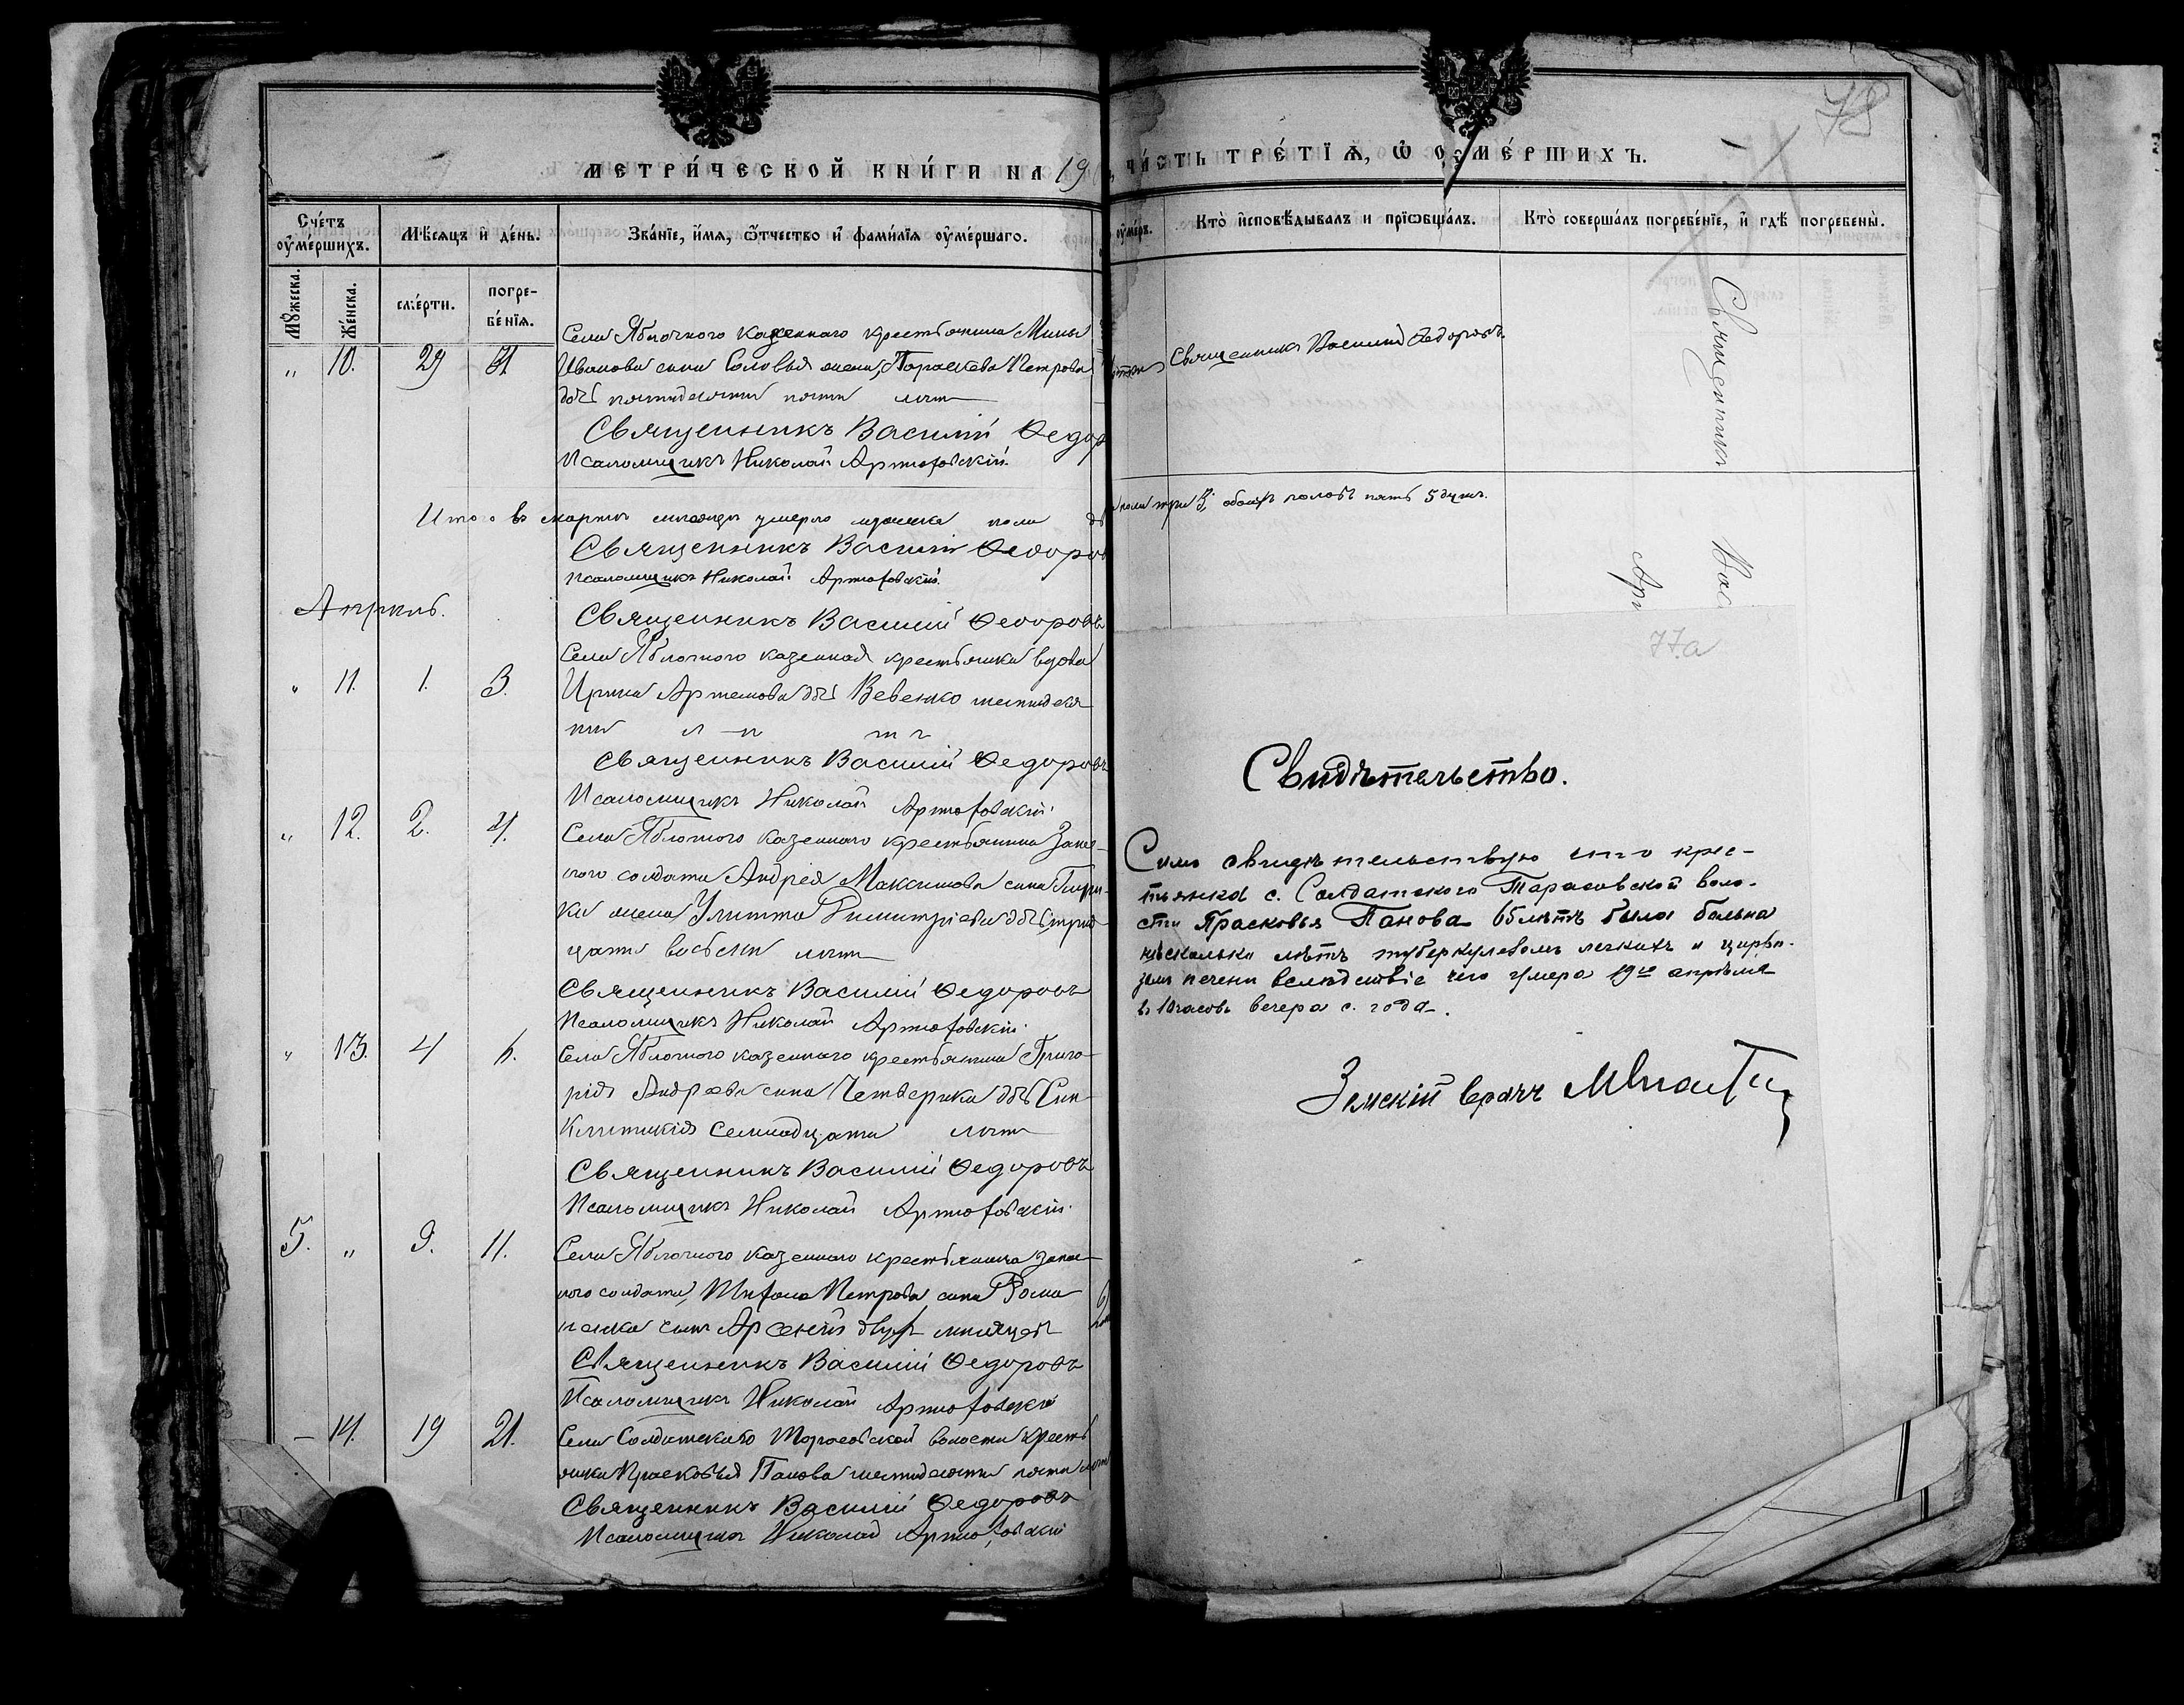 МЕТРИ́ЧЕСКОЙ КНИ́ГИ НА 19
Сче́тъ оуме́ршихъ.
Мѣ́сяцъ и де́нь.
Зва́нїе, и́мя, ѻ́тчество и фами́лїя оуме́ршаго.
Му́жеска.
Же́нска.
сме́рти.
погре-
бе́нїя.
Села Яблочного казенного крестьянина Мины
" 10. 29 31. Иванова сына Соловья жена, Параскева Петрова
дочь пятидесяти пяти лѣтъ
Священникъ Василій Ѳедор
Псаломщикъ Николай Артюховскій.
Итого въ мартѣ мѣсяцѣ умерло мужеска пола
Священникъ Василій Ѳедоров
Псаломщикъ Николай Артюховскій.
Апрѣль.
Священникъ Василій Ѳедоровъ
Села Яблочного казенная крестьянка вдова
" 11. 1. 3. Ирина Артемова дочь Вевенко шестидеся
ти лѣтъ
Священникъ Василій Ѳедоровъ
Псаломщикъ Николай Артюховскій.
" 12. 2. 4. Села Яблочного казенного крестьянина Запас-
ного солдата Андрея Максимова сына
жена Улитта Димитріева дочь, трид-
цати восьми лѣтъ
Священникъ Василій Ѳедоровъ
Псаломщикъ Николай Артюховскій.
" 13. 4 6. Села Яблочного казенного крестьянина Григо-
рія Андрѣева сына Четверика дочь Син-
клитикія семнадцати лѣтъ
Священникъ Василій Ѳедоровъ
Псаломщикъ Николай Артюховскій.
5. " 9. 11. Села Яблочного казенного крестьянина запас-
ного солдата, Тихона Петрова сына Рома
ненка сынъ Арсеній двухъ мѣсяцевъ
Священникъ Василій Ѳедоровъ
Псаломщикъ Николай Артюховскій
— 14. 19 21. Села Солдатскаго Тарасовской волости кресть
янка Прасковья Панова шестидесяти пяти лѣтъ
Священникъ Василій Ѳедоровъ
Псаломщикъ Николай Артюховскій
78
ЧА́СТЬ ТРЕ́ТЇѦ, Ѽ ОУМЕ́РШИХЪ.
оуме́ръ.
Кто̀ и҆сповѣ́дывалъ и прїѡбща́лъ.
Кто̀ соверша́лъ погребе́нїе, и҆ гдѣ̀ погребены̀.
Священникъ Василій Ѳедоровъ.
Священникъ
Вас
Арт
пола три 3, обоихъ половъ пять 5 душъ.
77а
Свидѣтельство.
Симъ свидѣтельствую что крес-
тьянка с. Солдатского Тарасовской воло-
сти Прасковья Панова 65 лѣтъ была больна
нѣсколько лѣтъ туберкулезомъ легкихъ и цирро-
зомъ печени вслѣдствіе чего умера 19го апрѣля
въ 10 часовъ вечера с. года.
Земскій врачъ